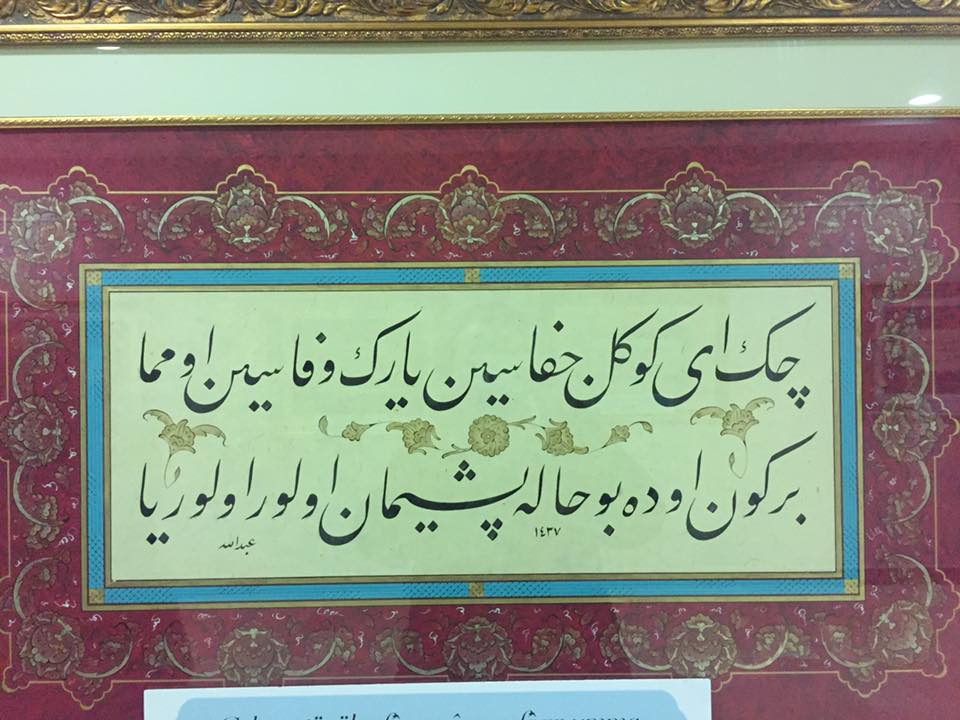 چك اى كوكل جفاسين يارك وفاسين اومما
بركون اوده بو حاله پشيمان اولور اولور يا
١٤٣٧
عبدالله